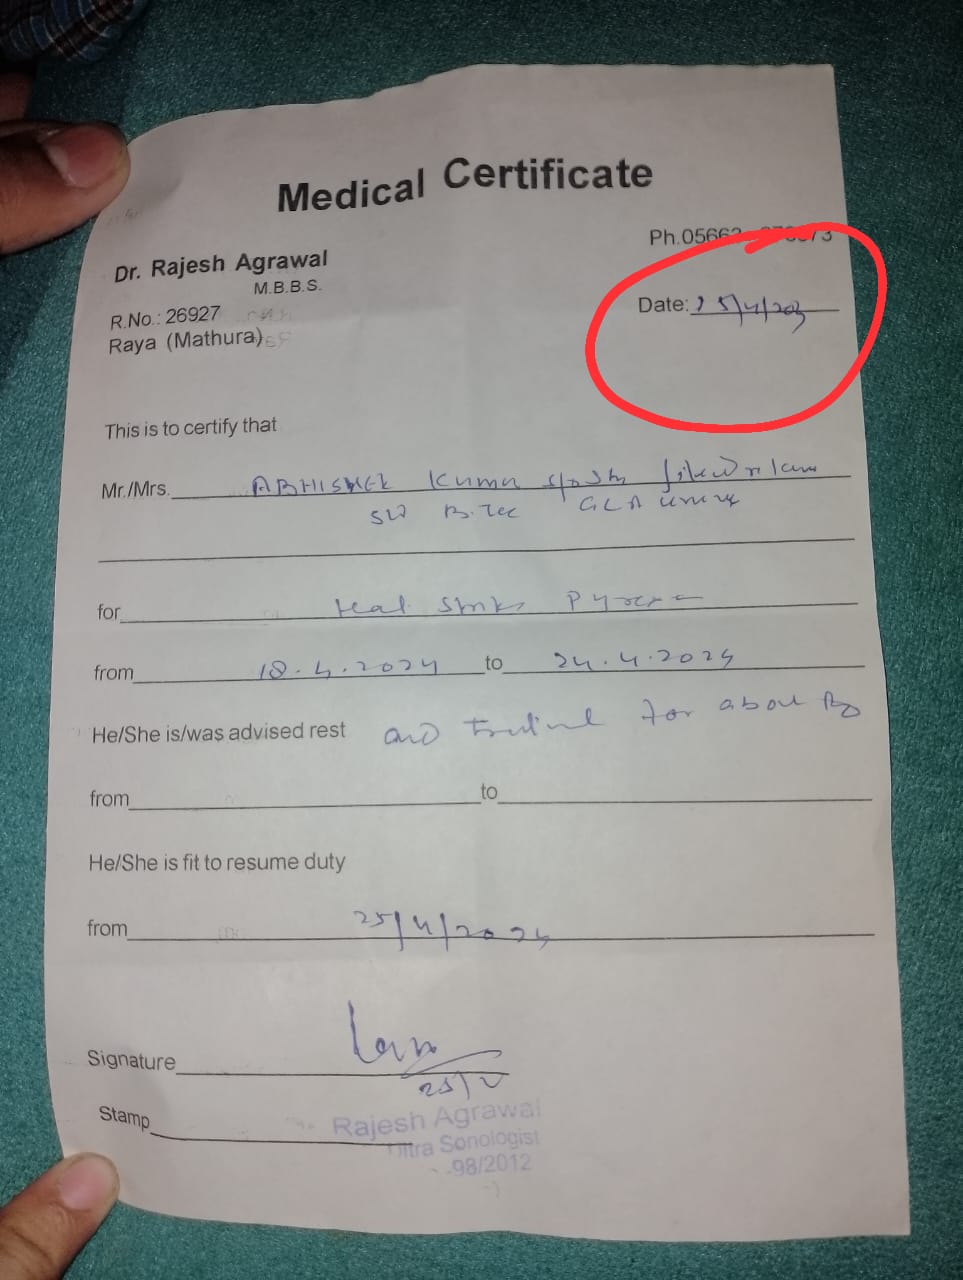 Medical Certificate
Ph.05662
Dr. Rajesh Agrawal
M.B.B.S.
Date: 25/4/20
R.No.: 26927
Raya (Mathura)
This is to certify that
Mr./Mrs. ABHISHEK Kumar
B.Tec GLA
for Heat
from 18.4.2024 to 24.4.2024
He/She is/was advised rest and for about
from to
He/She is fit to resume duty
from 25/4/2024
Signature
Stamp
Rajesh Agrawal
Ultra Sonologist
98/2012